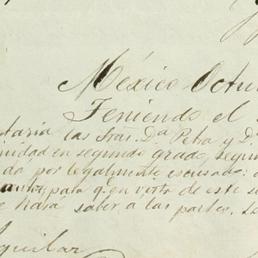 México Octu
Teniendo el
taria las Sras. Da. Petra y Da.
inidad en segundo grado, segun
da por legalmente escusado:
para q. en virtd de este
e hará saber a las partes. Lo
guilar